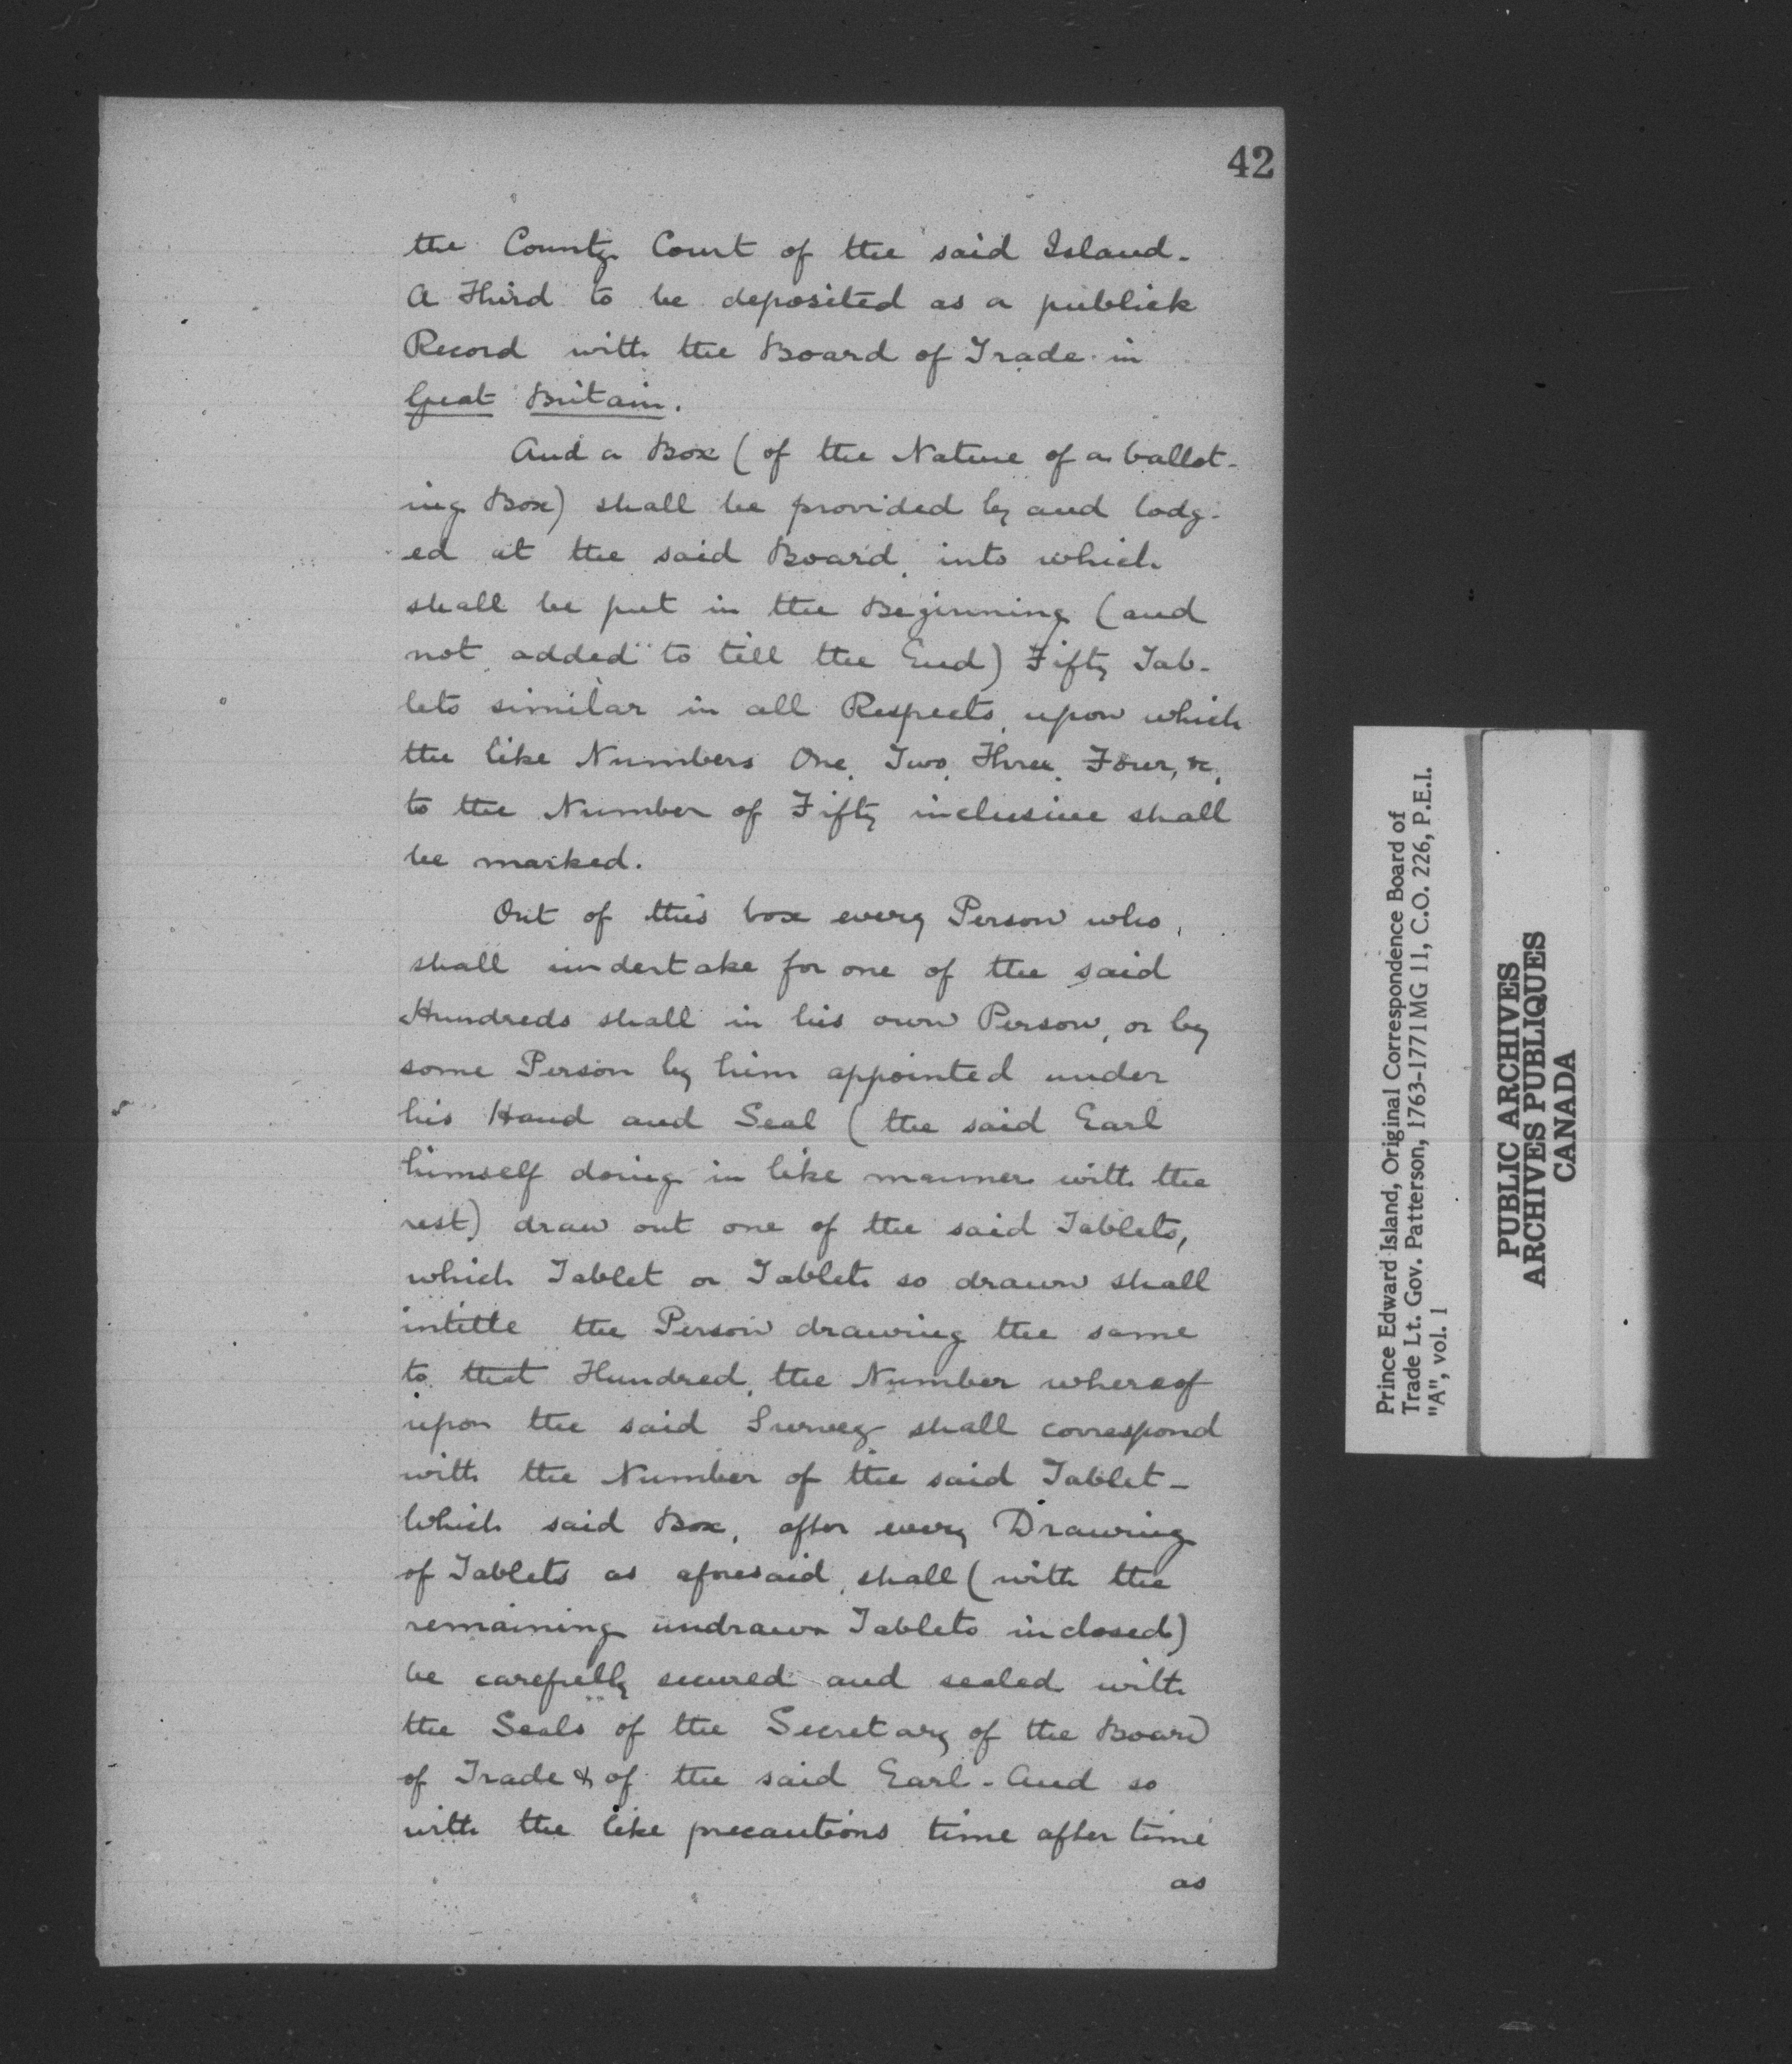 42
the County Court of the said Island.
A Third to be deposited as a publick
Record with the Board of Trade in
Great Britain.
And a Box (of the Nature of a ballot-
ing Box) shall be provided by and lodg-
ed at the said Board, into which
shall be put in the Beginning (and
not added to till the End) Fifty Tab-
lets similar in all Respects, upon which
the like Numbers One, Two, Three, Four, &c,
to the Number of Fifty inclusive shall
be marked.
Out of this box every Person who,
shall undertake for one of the said
Hundreds shall in his own Person, or by
some Person by him appointed under
his Hand and Seal (the said Earl
himself doing in like manner with the
rest) draw out one of the said Tablets,
which Tablet or Tablets so drawn shall
intitle the Person drawing the same
to that Hundred, the Number whereof
upon the said Survey shall correspond
with the Number of the said Tablet -
Which said Box, after every Drawing
of Tablets as aforesaid, shall (with the
remaining undrawn Tablets inclosed)
be carefully secured and sealed with
the Seals of the Secretary of the Board
of Trade & of the said Earl - And so
with the like precautions time after time
as
Prince Edward Island, Original Correspondence Board of
Trade Lt. Gov. Patterson, 1763-1771 MG 11, C.O. 226, P.E.I.
"A", vol. 1
PUBLIC ARCHIVES
ARCHIVES PUBLIQUES
CANADA